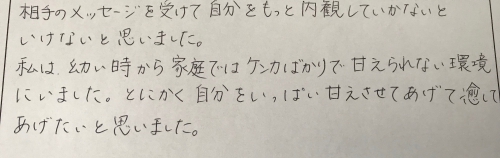 相手のメッセージを受けて自分をもっと内観していかないと
いけないと思いました。
私は、幼い時から家庭ではケンカばかりで甘えられない環境
にいました。とにかく自分をいっぱい甘えさせてあげて癒して
あげたいと思いました。